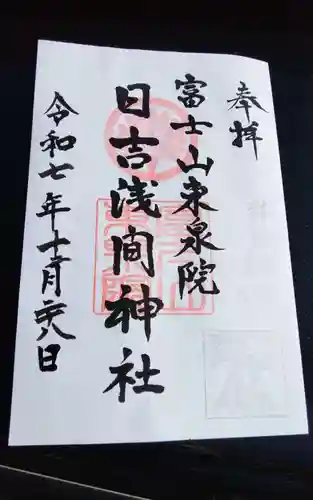 奉拝
富士山東泉院
日吉浅間神社
令和七年十二月二十八日